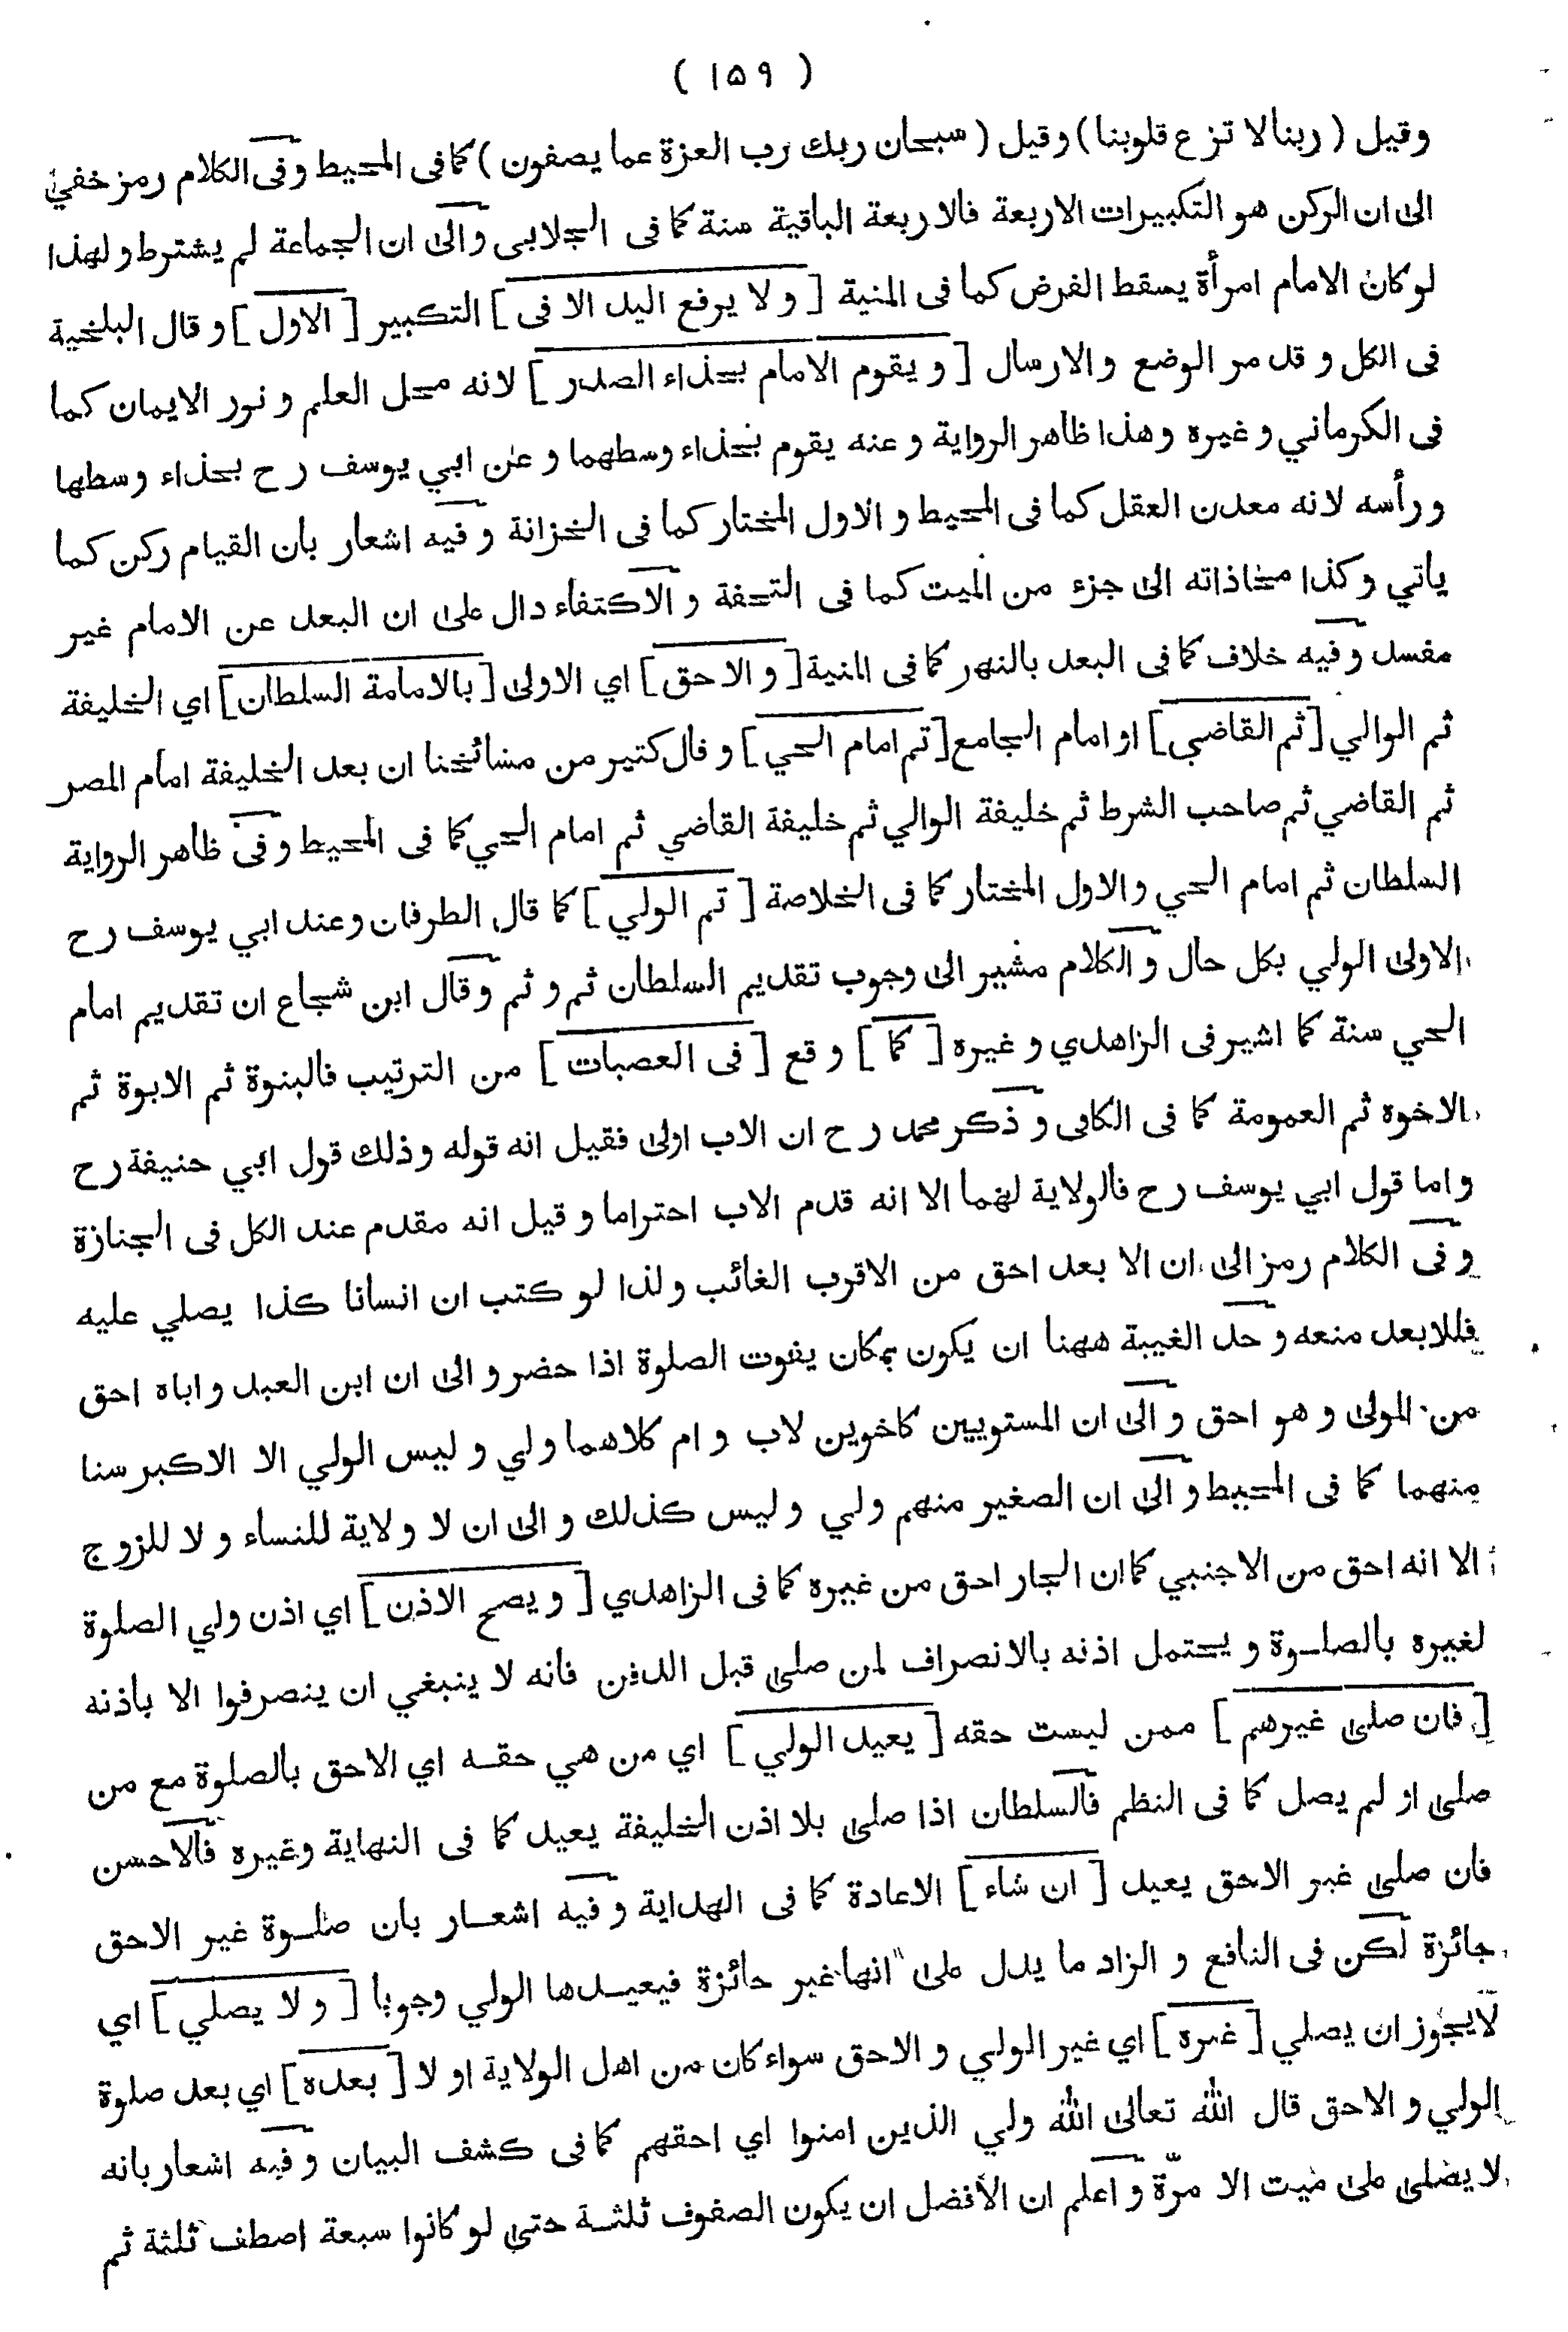 ( ١٥٩ )
وقيل ( ربنا لا تزغ قلوبنا ) وقيل ( سبحان ربك رب العزة عما يصفون ) كما فى المحيط وفى الكلام رمز خفي
الى ان الركن هو التكبيرات الاربعة فالاربعة الباقية سنة كما فى الجلابى والى ان الجماعة لم يشترط ولهذا
لو كان الامام امرأة يسقط الفرض كما فى المنية [ و لا يرفع اليد الا فى ] التكبير [ الاول ] و قال البلخية
فى الكل و قد مر الوضع و الارسال [ و يقوم الامام بحذاء الصدر ] لانه محل العلم و نور الايمان كما
فى الكرماني و غيره و هذا ظاهر الرواية و عنه يقوم بحذاء وسطهما و عن ابي يوسف رح بحذاء وسطها
و رأسه لانه معدن العقل كما فى المحيط و الاول المختار كما فى الخزانة و فيه اشعار بان القيام ركن كما
ياتي و كذا محاذاته الى جزء من الميت كما فى التحفة و الاكتفاء دال على ان البعد عن الامام غير
مفسد و فيه خلاف كما فى البعد بالنهر كما فى المنية [ و الاحق ] اي الاولى [ بالامامة السلطان ] اي الخليفة
ثم الوالي [ ثم القاضي ] او امام الجامع [ ثم امام الحي ] و قال كثير من مشائخنا ان بعد الخليفة امام المصر
ثم القاضي ثم صاحب الشرط ثم خليفة الوالي ثم خليفة القاضي ثم امام الحي كما فى المحيط و فى ظاهر الرواية
السلطان ثم امام الحي و الاول المختار كما فى الخلاصة [ ثم الولي ] كما قال الطرفان و عند ابي يوسف رح
الاولى الولي بكل حال و الكلام مشير الى وجوب تقديم السلطان ثم و ثم و قال ابن شجاع ان تقديم امام
الحي سنة كما اشير فى الزاهدي و غيره [ كما ] و قع [ فى العصبات ] من الترتيب فالبنوة ثم الابوة ثم
الاخوة ثم العمومة كما فى الكافى و ذكر محمد رح ان الاب اولى فقيل انه قوله و ذلك قول ابي حنيفة رح
و اما قول ابي يوسف رح فالولاية لهما الا انه قدم الاب احتراما و قيل انه مقدم عند الكل فى الجنازة
و فى الكلام رمز الى ان الا بعد احق من الاقرب الغائب و لذا لو كتب ان انسانا كذا يصلي عليه
فللابعد منعه و حد الغيبة ههنا ان يكون بمكان يفوت الصلوة اذا حضر و الى ان ابن العبد و اباه احق
من المولى و هو احق و الى ان المستويين كاخوين لاب و ام كلاهما ولي و ليس الولي الا الاكبر سنا
منهما كما فى المحيط و الى ان الصغير منهم ولي و ليس كذلك و الى ان لا ولاية للنساء و لا للزوج
الا انه احق من الاجنبي كما ان الجار احق من غيره كما فى الزاهدي [ و يصح الاذن ] اي اذن ولي الصلوة
لغيره بالصلوة و يحتمل اذنه بالانصراف لمن صلى قبل الدفن فانه لا ينبغي ان ينصرفوا الا باذنه
[ فان صلى غيرهم ] ممن ليست حقه [ يعيد الولي ] اي من هي حقه اي الاحق بالصلوة مع من
صلى او لم يصل كما فى النظم فالسلطان اذا صلى بلا اذن الخليفة يعيد كما فى النهاية وغيره فالاحسن
فان صلى غير الاحق يعيد [ ان شاء ] الاعادة كما فى الهداية و فيه اشعار بان صلوة غير الاحق
جائزة لكن فى النافع و الزاد ما يدل على انها غير جائزة فيعيدها الولي وجوبا [ و لا يصلي ] اي
لا يجوز ان يصلي [ غيره ] اي غير الولي و الاحق سواء كان من اهل الولاية او لا [ بعده ] اي بعد صلوة
الولي و الاحق قال الله تعالى الله ولي الذين امنوا اي احقهم كما فى كشف البيان و فيه اشعار بانه
لا يصلى على ميت الا مرّة و اعلم ان الأفضل ان يكون الصفوف ثلثة حتى لو كانوا سبعة اصطف ثلثة ثم